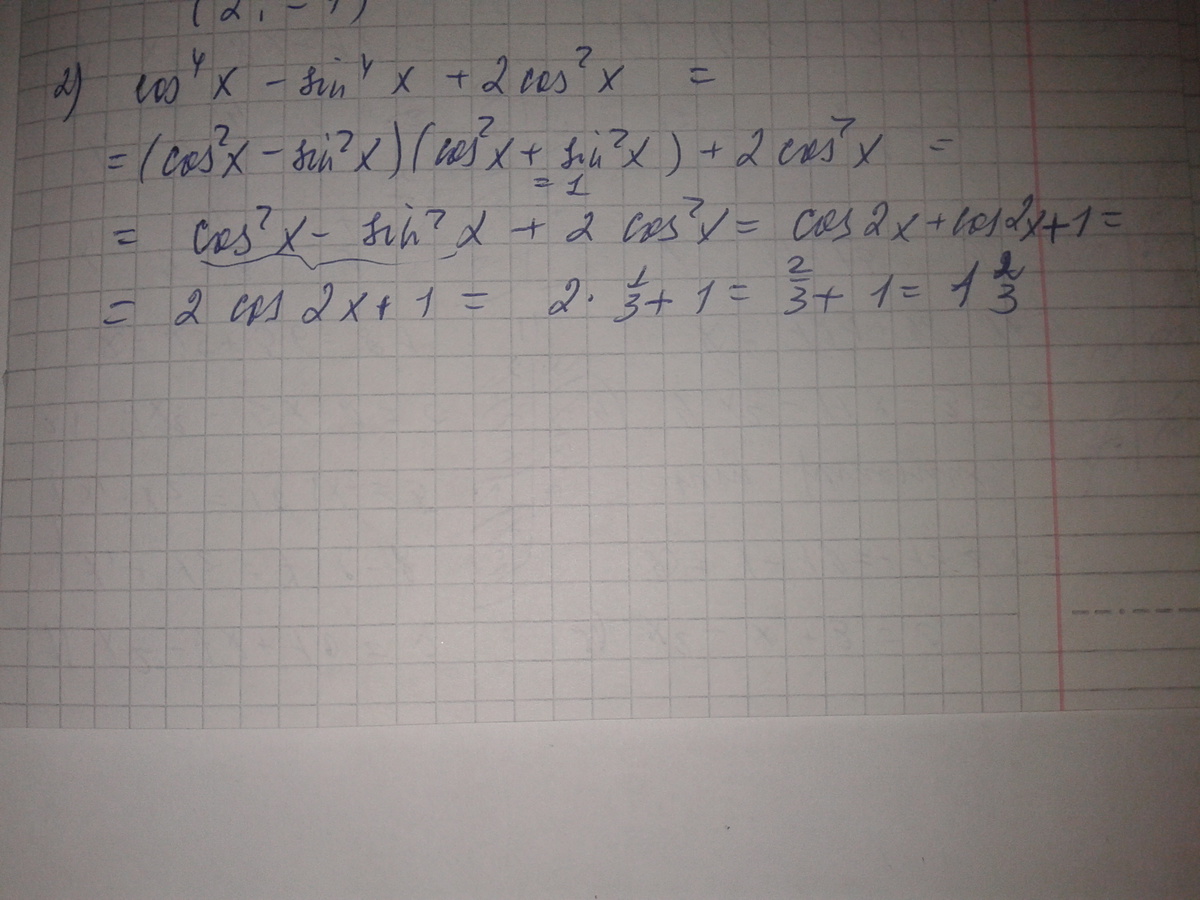 2) cos⁴x - sin⁴x + 2cos²x =
= (cos²x - sin²x)(cos²x + sin²x) + 2cos²x =
= 1
= cos²x - sin²x + 2 cos²x = cos2x + cos2x + 1 =
= 2 cos 2x + 1 = 2 · 1/3 + 1 = 2/3 + 1 = 1 2/3